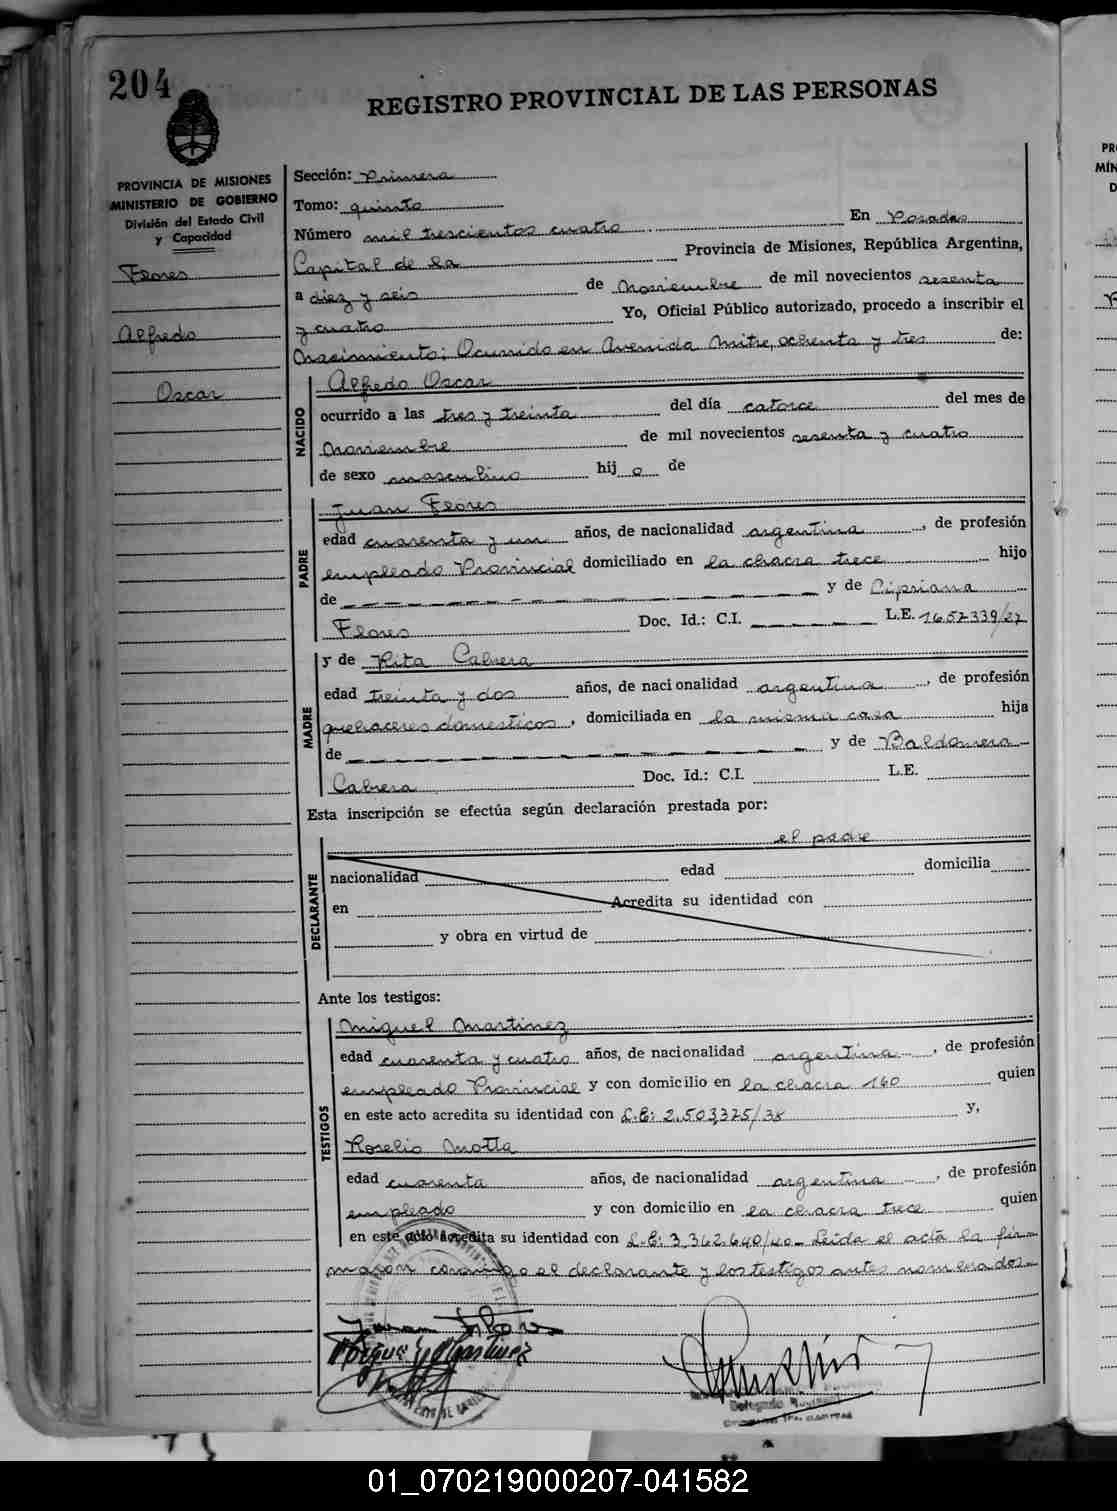 204
REGISTRO PROVINCIAL DE LAS PERSONAS
PROVINCIA DE MISIONES
MINISTERIO DE GOBIERNO
División del Estado Civil
y Capacidad
Flores
Alfredo
Oscar
Sección: Primera
Tomo: quinto
Número mil trescientos cuatro En Posadas
Capital de la Provincia de Misiones, República Argentina,
a diez y seis de Noviembre de mil novecientos sesenta
y cuatro Yo, Oficial Público autorizado, procedo a inscribir el
Nacimiento; Ocurrido en Avenida Mitre, ochenta y tres de:
NACIDO
Alfredo Oscar
ocurrido a las tres y treinta del día catorce del mes de
Noviembre de mil novecientos sesenta y cuatro
de sexo masculino hij o de
PADRE
Juan Flores
edad cuarenta y un años, de nacionalidad argentina, de profesión
empleado Provincial domiciliado en la chacra trece hijo
de y de Cipriana
Flores Doc. Id.: C.I. L.E. 1657339/27
MADRE
y de Rita Cabrera
edad treinta y dos años, de nacionalidad argentina, de profesión
quehaceres domesticos, domiciliada en la misma casa hija
de y de Baldomera
Cabrera Doc. Id.: C.I. L.E.
Esta inscripción se efectúa según declaración prestada por:
el padre
DECLARANTE
nacionalidad edad domicilia
en Acredita su identidad con
y obra en virtud de
Ante los testigos:
TESTIGOS
Miguel Martinez
edad cuarenta y cuatro años, de nacionalidad argentina, de profesión
empleado Provincial y con domicilio en la chacra 160 quien
en este acto acredita su identidad con L.E: 2.503,375/38 y,
Roselio Motta
edad cuarenta años, de nacionalidad argentina, de profesión
empleado y con domicilio en la chacra trece quien
en este acto acredita su identidad con L.E: 3,362.640/40_ Leida el acta la fir=
maron conmigo el declarante y los testigos antes nombrados.
Juan Flores
01_070219000207-041582